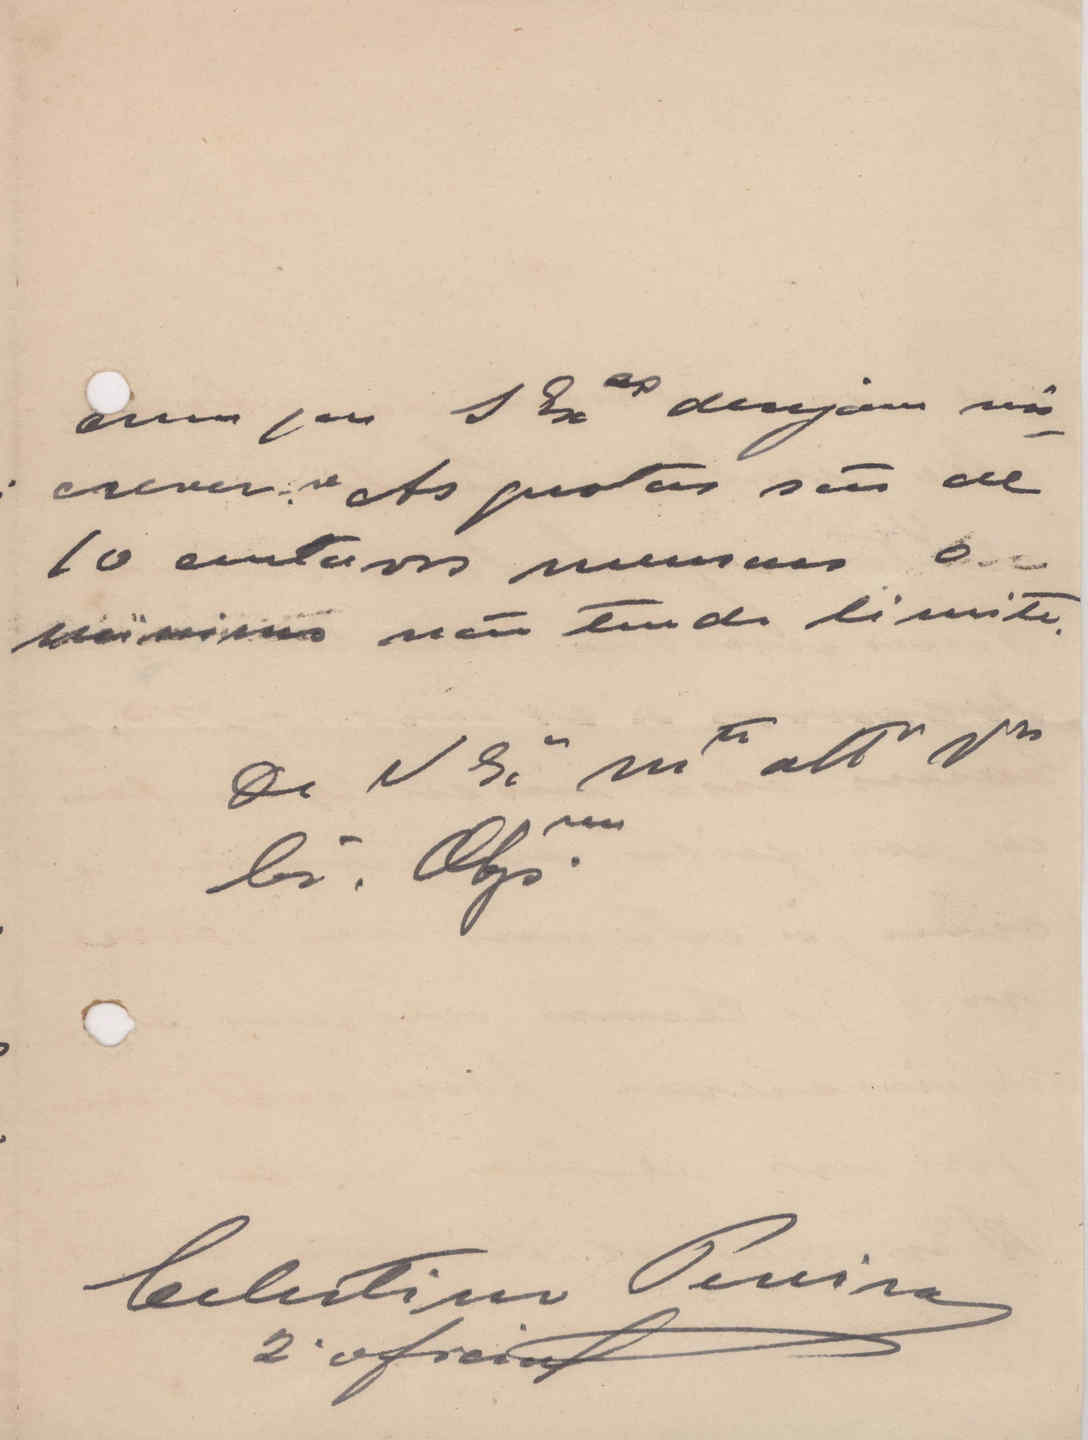 como por S Ex.as desejam ins-
crever-se. As quotas são de
10 centavos mensaes o
minimo não tendo limite.
De V Ex.a m.to att.o v.or
Cr.o Obg.mo
Celestino Pereira
2.º oficial